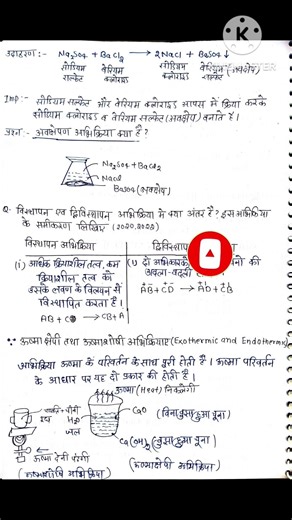 उदाहरण:- Na₂So4 + BaCl₂ → 2NaCl + BaSo4↓
सोडियम सल्फेट बेरियम क्लोराइड सोडियम क्लोराइड बेरियम सल्फेट (अवक्षेप)
Imp:- सोडियम सल्फेट और बेरियम क्लोराइड आपस में क्रिया करके
सोडियम क्लोराइड व बेरियम सल्फेट (अवक्षेप) बनाते है।
प्रश्न - अवक्षेपण अभिक्रिया क्या है?
Na₂So4 + BaCl₂
NaCl
BaSo4 (अवक्षेप)
Q- विस्थापन एवं द्विविस्थापन अभिक्रिया में क्या अंतर है? इन अभिक्रिया
के समीकरण लिखिए (2020, 2025)
विस्थापन अभिक्रिया
(i) अधिक क्रियाशील तत्व, कम
क्रियाशील तत्व को
उसके लवण के विलयन में
विस्थापित करता है।
AB + C → CB + A
द्विविस्थाप
(i) दो अभिकारक की
अदला-बदली
AB + CD → AD + CB
ऊष्माक्षेपी तथा ऊष्माशोषी अभिक्रियाएं (Exothermic and Endothermic
अभिक्रिया ऊष्मा के परिवर्तन के साथ पूरी होती है। ऊष्मा परिवर्तन
के आधार पर यह दो प्रकार की होती है।
ऊष्मा (Heat) निकलेगी
H₂O
जल
ऊष्मा देनी पड़ेगी
(ऊष्माशोषी अभिक्रिया)
CaO (बिना बुझा हुआ चूना)
Ca(OH)₂ (बुझा हुआ चूना)
(ऊष्माक्षेपी अभिक्रिया)
K
KINEMASTER